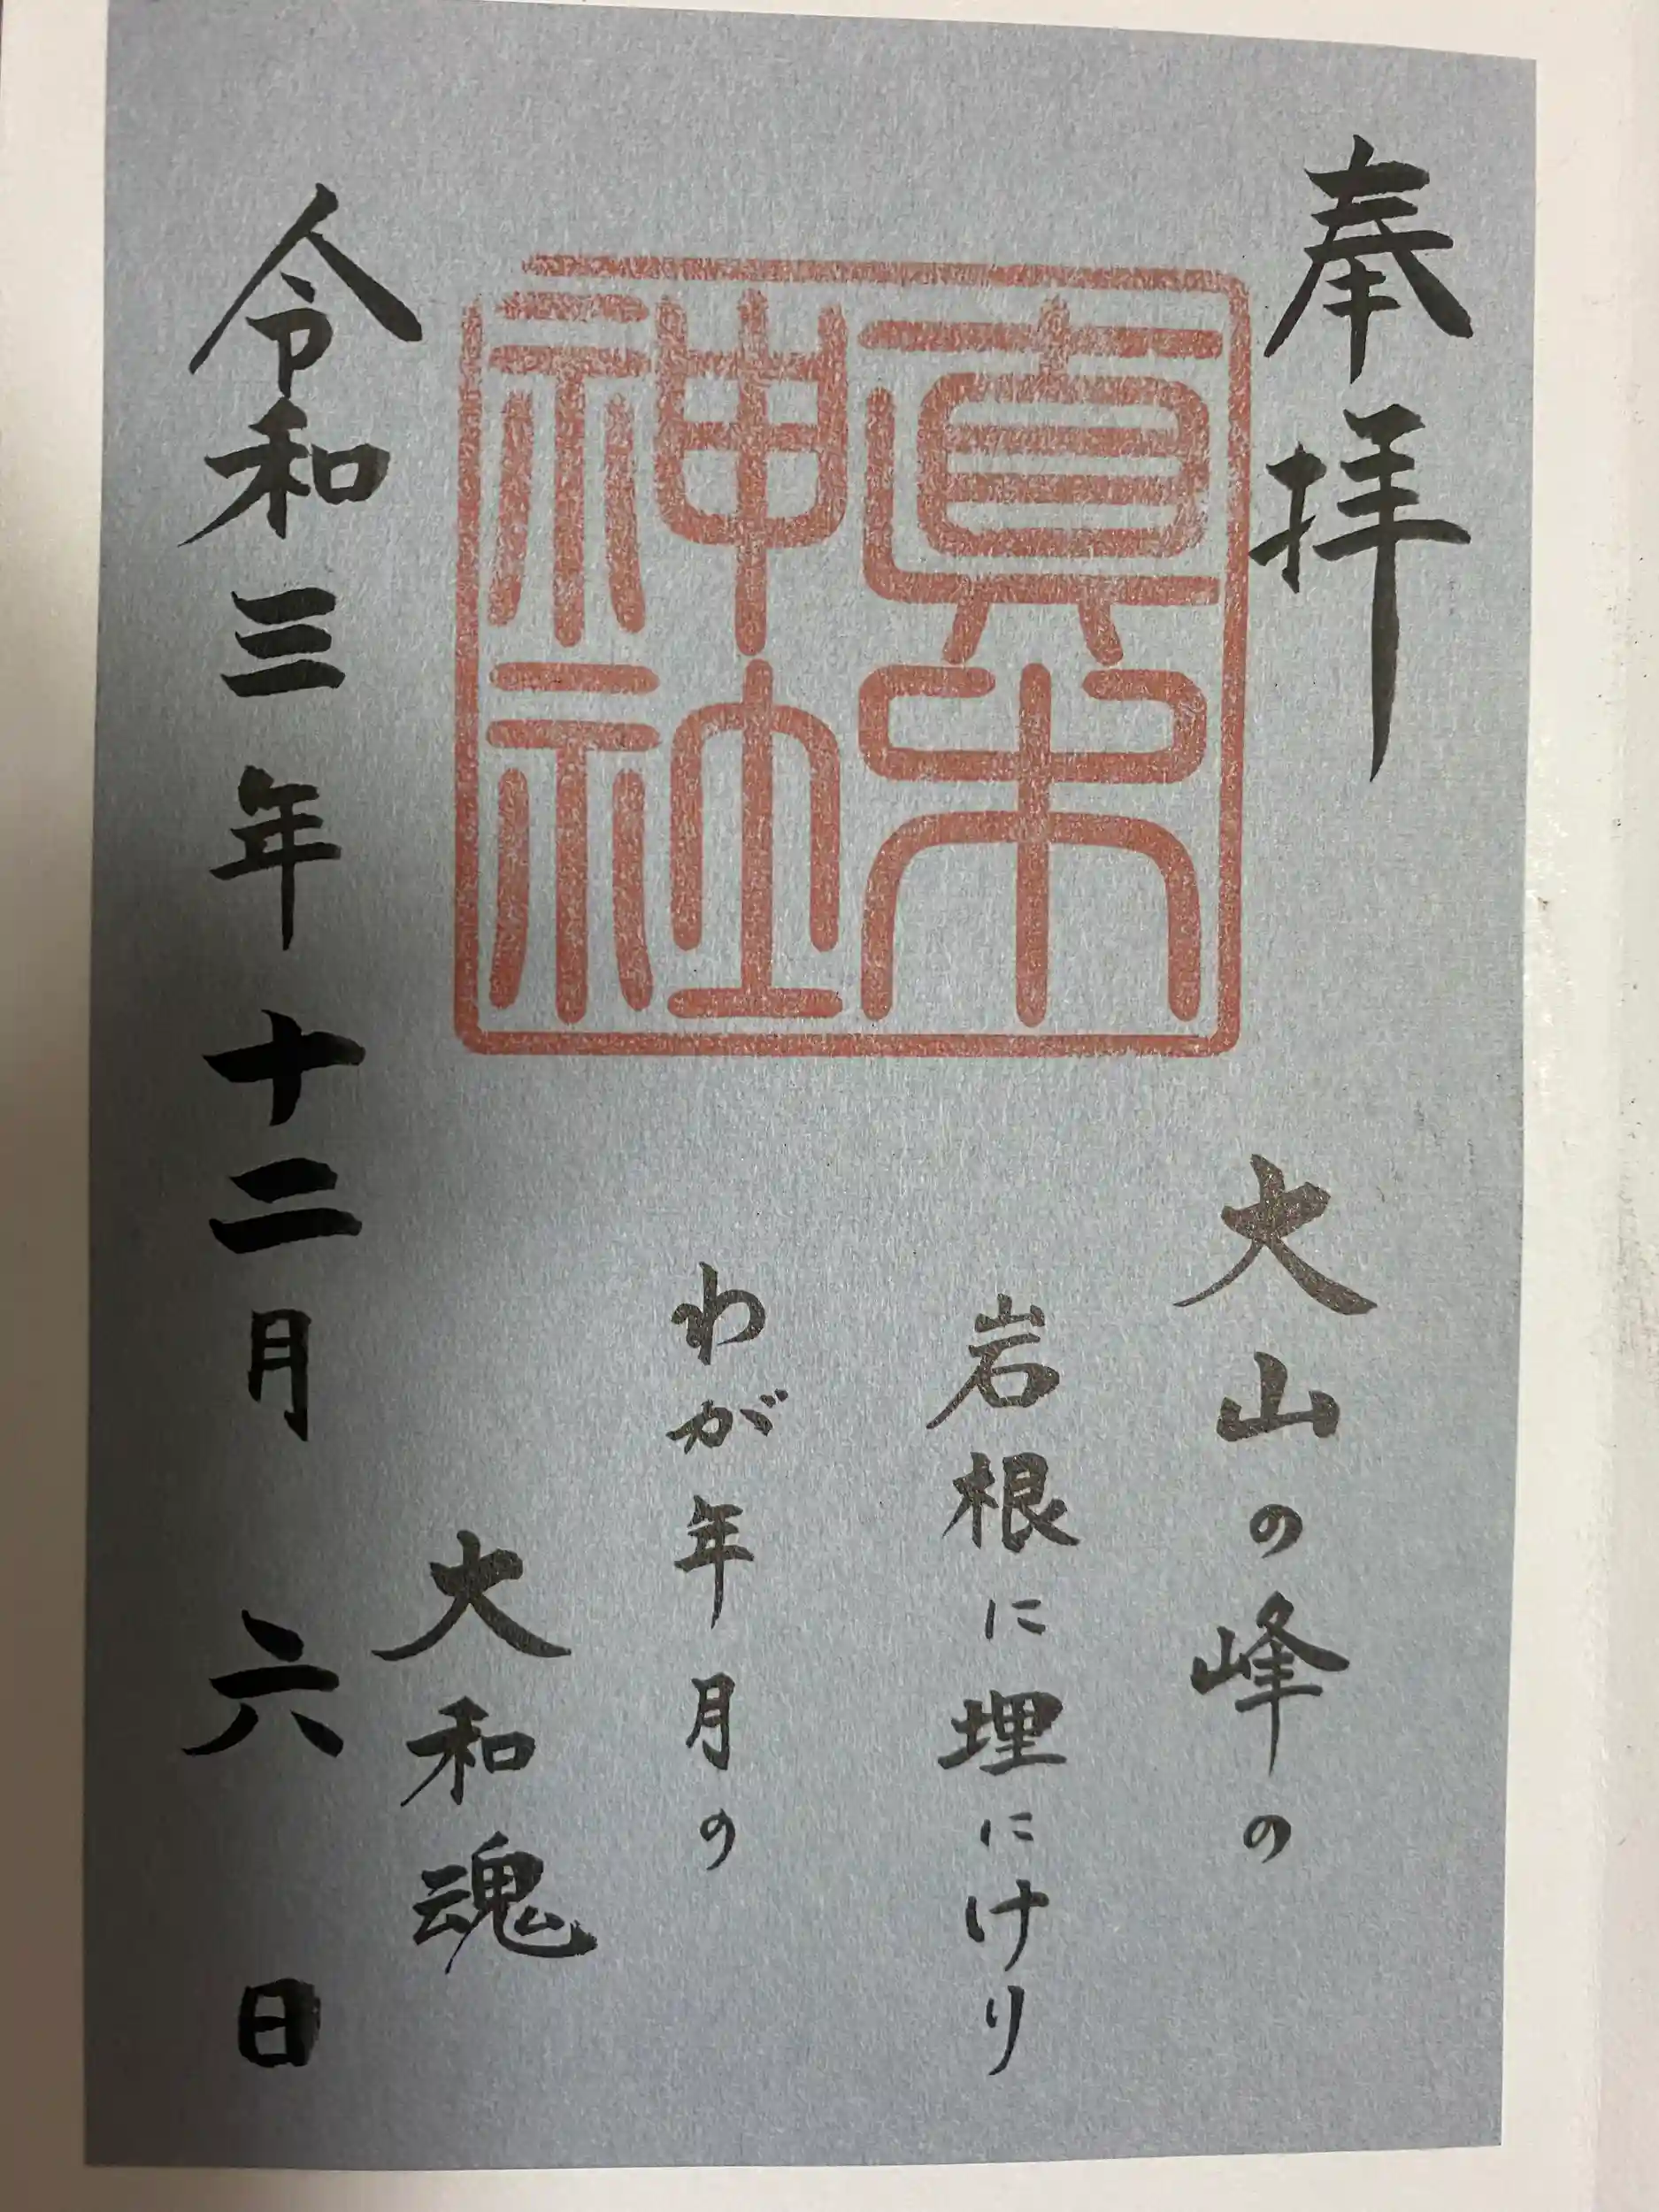 奉拝
真木
神社
大山の峰の
岩根に埋にけり
わが年月の
大和魂
令和三年十二月六日